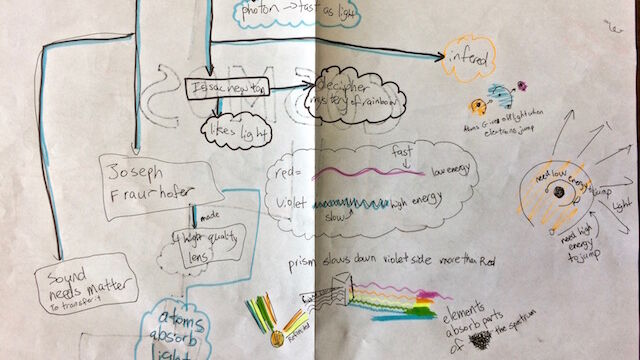 photon → fast as light
infered
Isaac newton
decipher
mystery of rainbow
likes light
Atoms Gives off light when
electrons jump
Joseph
Fraurhofer
made
4 high quality
lens
fast
red=
low energy
violet
high energy
slow
need low energy
to jump
light
need high
energy
to jump
Sound
needs matter
To transfer it
prism slows down violet side more than Red
atoms
absorb
light
elements
absorb parts
of the spectrum